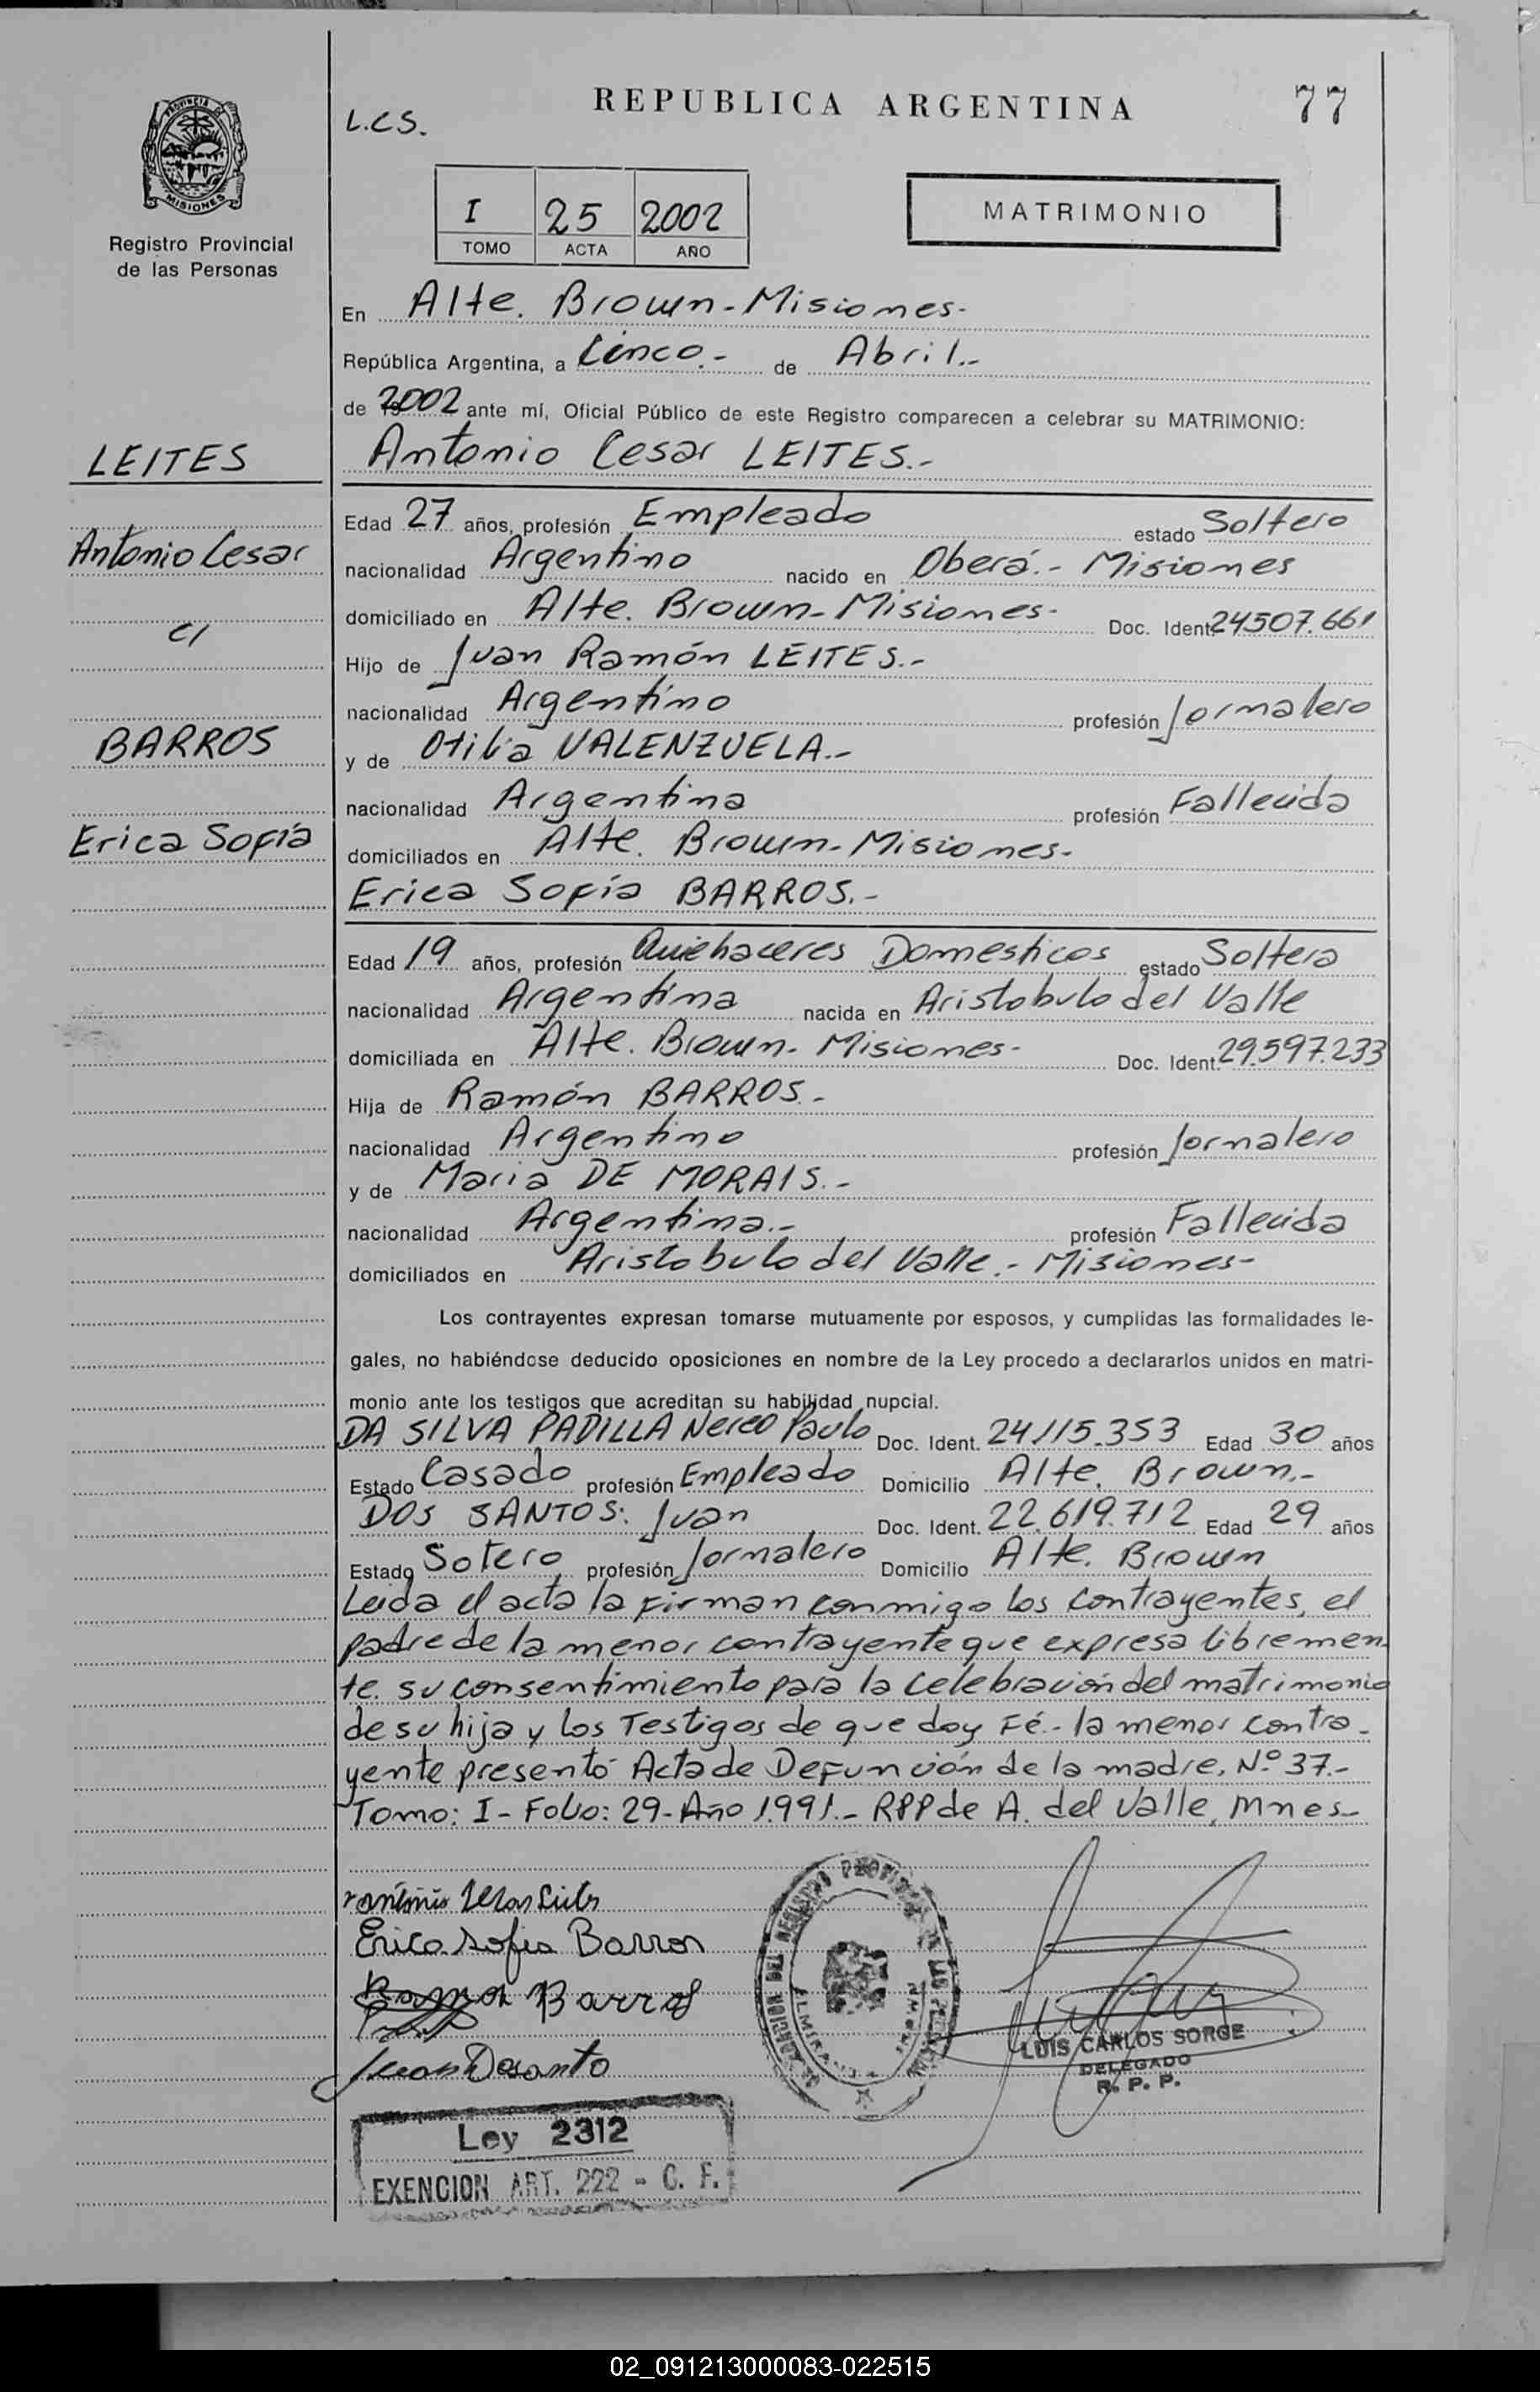 REPUBLICA ARGENTINA
77
L.C.S.
PROVINCIA DE
MISIONES
Registro Provincial
de las Personas
I 25 2002
TOMO ACTA AÑO
MATRIMONIO
En Alte. Brown-Misiones-
República Argentina, a Cinco.- de Abril.-
de 2002 ante mí, Oficial Público de este Registro comparecen a celebrar su MATRIMONIO:
LEITES
Antonio Cesar LEITES.-
Edad 27 años, profesión Empleado estado Soltero
Antonio Cesar
nacionalidad Argentino nacido en Oberá.- Misiones
domiciliado en Alte. Brown-Misiones- Doc. Ident. 24507.661
c/
Hijo de Juan Ramón LEITES.-
nacionalidad Argentino profesión Jornalero
BARROS
y de Otilia VALENZUELA.-
nacionalidad Argentina profesión Fallecida
Erica Sofía
domiciliados en Alte. Brown-Misiones-
Erica Sofía BARROS.-
Edad 19 años, profesión Quiehaceres Domesticos estado Soltera
nacionalidad Argentina nacida en Aristobulo del Valle
domiciliada en Alte. Brown- Misiones- Doc. Ident. 29.597.233
Hija de Ramón BARROS.-
nacionalidad Argentino profesión Jornalero
y de Maria DE MORAIS.-
nacionalidad Argentina.- profesión Fallecida
domiciliados en Aristobulo del Valle.- Misiones-
Los contrayentes expresan tomarse mutuamente por esposos, y cumplidas las formalidades le-
gales, no habiéndose deducido oposiciones en nombre de la Ley procedo a declararlos unidos en matri-
monio ante los testigos que acreditan su habilidad nupcial.
DA SILVA PADILLA Nereo Paulo Doc. Ident. 24.115.353 Edad 30 años
Estado Casado profesión Empleado Domicilio Alte. Brown.-
DOS SANTOS: Juan Doc. Ident. 22.619.712 Edad 29 años
Estado Sotero profesión Jornalero Domicilio Alte. Brown
Leida el acta la firman conmigo los contrayentes, el
padre de la menor contrayente que expresa libremen-
te su consentimiento para la celebración del matrimonio
de su hija y los Testigos de que doy Fé.- la menor contra-
yente presentó Acta de Defunción de la madre, Nº 37.-
Tomo: I- Folio: 29- Año 1.991.- RPP de A. del Valle, Mnes-
Erica Sofia Barros
Ramon Barros
Juan Dosanto
LUIS CARLOS SORGE
DELEGADO
R. P. P.
Ley 2312
EXENCION ART. 222 - C. F.
02_091213000083-022515